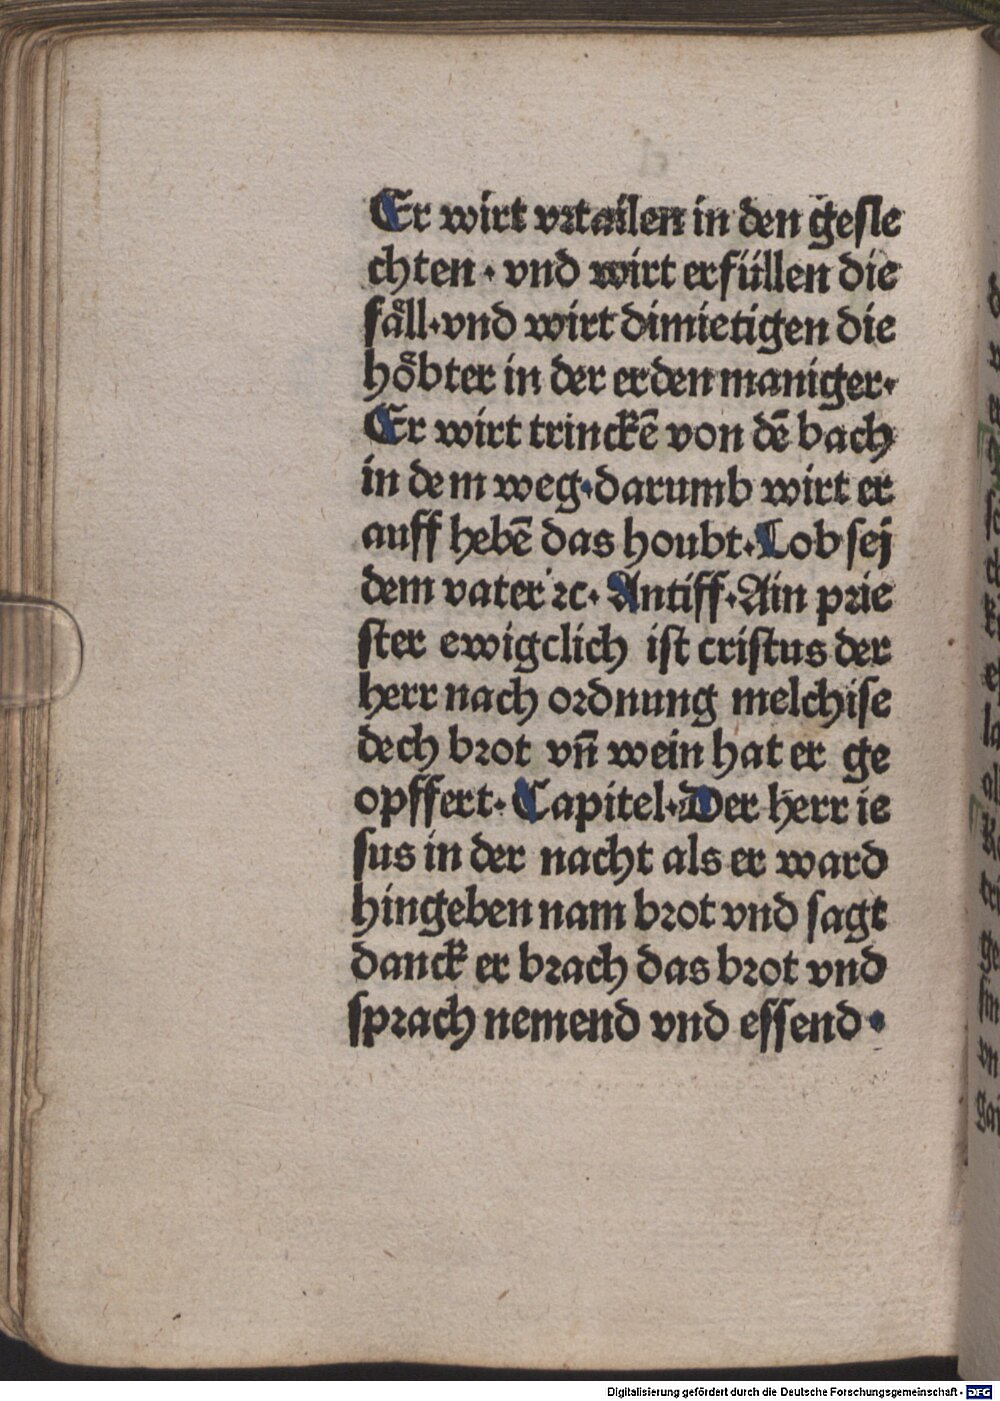 Er wirt vrtailen in den gesle
chten · vnd wirt erfüllen die
fåll · vnd wirt dimietigen die
hoͤbter in der erden maniger ·
Er wirt trinckē von dē bach
in dem weg · darumb wirt er
auff hebē das houbt · Lob sej
dem vater ꝛc · Antiff · Ain prie
ster ewigclich ist cristus der
herr nach ordnung melchise
dech brot vn̄ wein hat er ge
opffert · Capitel · Der herr ie
sus in der nacht als er ward
hingeben nam brot vnd sagt
danck er brach das brot vnd
sprach nemend vnd essend ·
Digitalisierung gefördert durch die Deutsche Forschungsgemeinschaft - DFG